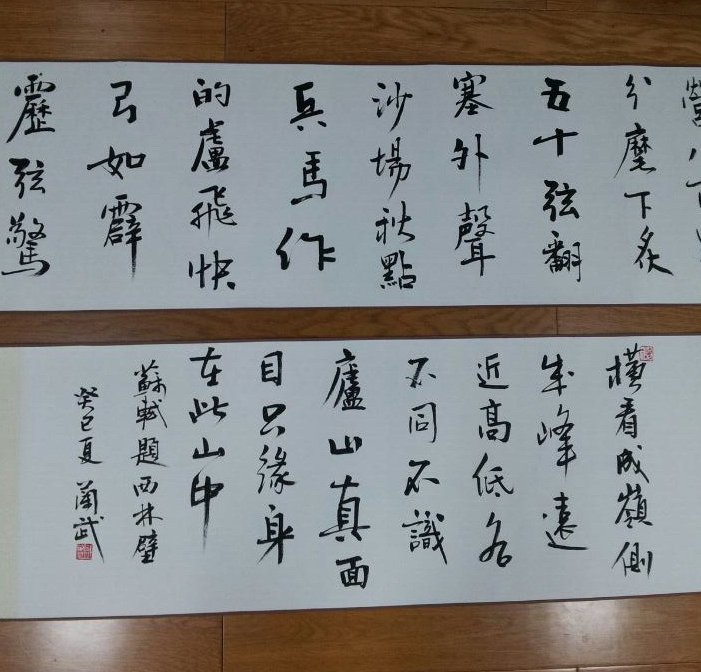 營八百
分麾下炙
五十弦翻
塞外聲
沙場秋點
兵馬作
的盧飛快
弓如霹
靂弦驚
橫看成嶺側
成峰遠
近高低各
不同不識
廬山真面
目只緣身
在此山中
蘇軾題西林壁
癸巳夏 蘭武